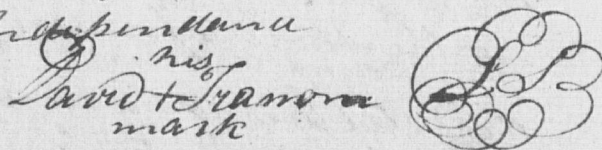 Independance
his
David + Tramom
mark
L S